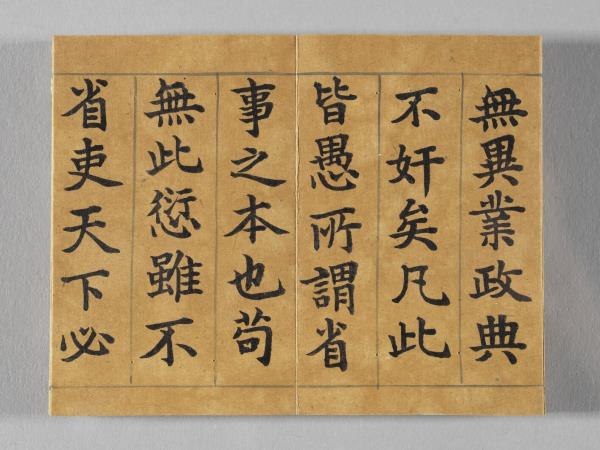 無異業政典
不奸矣凡此
皆愚所謂省
事之本也苟
無此愆雖不
省吏天下必